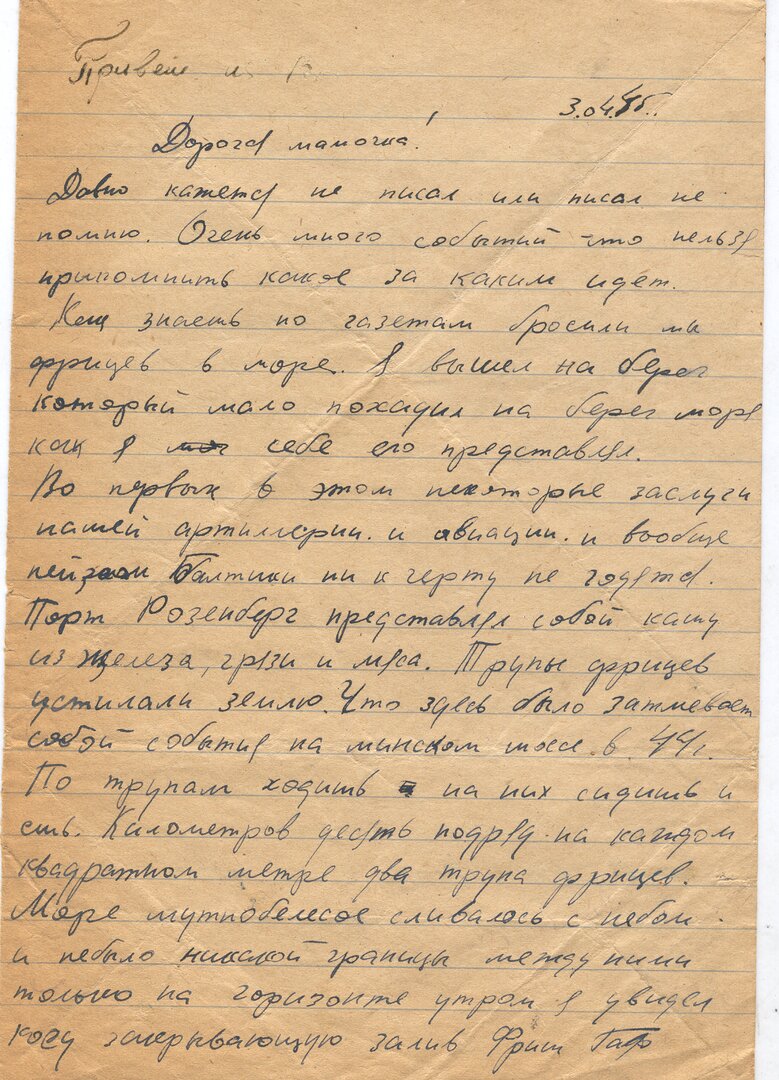 Привет из
3.04.45.
Дорогая мамочка!
Давно кажется не писал или писал не
помню. Очень много событий что нельзя
припомнить какое за каким идет.
Как знаешь по газетам бросили мы
фрицев в море. Я вышел на берег
который мало походил на берег моря
как я себе его представлял.
Во первых в этом некоторые заслуги
нашей артиллерии. и авиации. и вообще
пейзажи Балтики ни к черту не годятся.
Порт Розенберг представлял собой кашу
из железа, грязи и мяса. Трупы фрицев
устилали землю. Что здесь было затмевает
собой события на минском шоссе в 44г.
По трупам ходишь на них сидишь и
ешь. Километров десять подряд на каждом
квадратном метре два трупа фрицев.
Море мутнобелесое сливалось с небом.
и небыло никакой границы между ними
только на горизонте утром я увидел
косу закрывающую залив Фриш Гаф